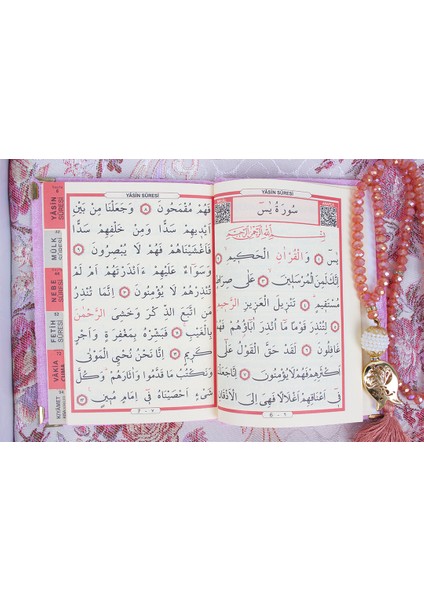 YÂSÎN SÛRESİ
سُورَةُ يٰسٓ
بِسْمِ اللّٰهِ الرَّحْمٰنِ الرَّحِيمِ
يٰسٓ ﴿١﴾ وَالْقُرْاٰنِ الْحَكِيمِ ﴿٢﴾
اِنَّكَ لَمِنَ الْمُرْسَلِينَ ﴿٣﴾ عَلٰى صِرَاطٍ
مُسْتَقِيمٍ ﴿٤﴾ تَنْزِيلَ الْعَزِيزِ الرَّحِيمِ ﴿٥﴾
لِتُنْذِرَ قَوْمًا مَٓا اُنْذِرَ اٰبَٓاؤُهُمْ فَهُمْ
غَافِلُونَ ﴿٦﴾ لَقَدْ حَقَّ الْقَوْلُ عَلٰٓى
اَكْثَرِهِمْ فَهُمْ لَا يُؤْمِنُونَ ﴿٧﴾ اِنَّا جَعَلْنَا
فِٓى اَعْنَاقِهِمْ اَغْلَالًا فَهِىَ اِلَى الْاَذْقَانِ
6 - ٦
YÂSÎN SÛRESİ
فَهُمْ مُقْمَحُونَ ﴿٨﴾ وَجَعَلْنَا مِنْ بَيْنِ
اَيْدِيهِمْ سَدًّا وَمِنْ خَلْفِهِمْ سَدًّا
فَاَغْشَيْنَاهُمْ فَهُمْ لَا يُبْصِرُونَ ﴿٩﴾
وَسَوَٓاءٌ عَلَيْهِمْ ءَاَنْذَرْتَهُمْ اَمْ لَمْ
تُنْذِرْهُمْ لَا يُؤْمِنُونَ ﴿١٠﴾ اِنَّمَا تُنْذِرُ
مَنِ اتَّبَعَ الذِّكْرَ وَخَشِىَ الرَّحْمٰنَ
بِالْغَيْبِ فَبَشِّرْهُ بِمَغْفِرَةٍ وَاَجْرٍ
كَرِيمٍ ﴿١١﴾ اِنَّا نَحْنُ نُحْيِى الْمَوْتٰى
وَنَكْتُبُ مَا قَدَّمُوا وَاٰثَارَهُمْ وَكُلَّ
شَىْءٍ اَحْصَيْنَاهُ فِٓى اِمَامٍ مُبِينٍ ﴿١٢﴾
7 - ٧
YÂSÎN SÛRESİ
MÜLK
NEBE SÛRESİ
FETİH SÛRESİ
VÂKIA
KIYAMET